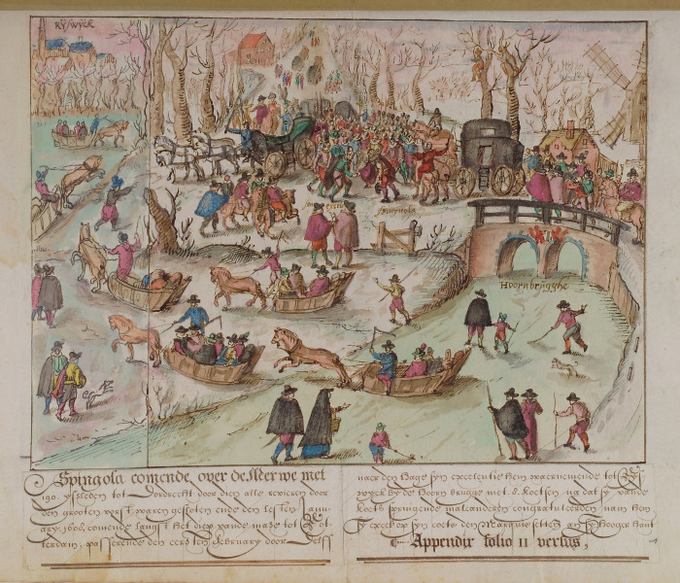 RYSWYCK
Spinola
Hoornbrugghe
Spingola comende over de Merwe met
190. ysleden tot Dordrecht door dien alle revieren door
den grooten vorst waren gesloten ende den lesten Janu-
ary. 1608. comende langst het diep vande mase tot Rot-
terdam, passerende den eersten February door Delff
naer den Hage syn excelentie hem waernemende tot Rys-
wyck by de Hoorn brugge met. 8. koetsen na dat sy vande
koets springende malcanderen congratuleerden nam hem
syn excell op syn coets den Marquis setten aen sy hooger hant
Appendix folio 11 versus,